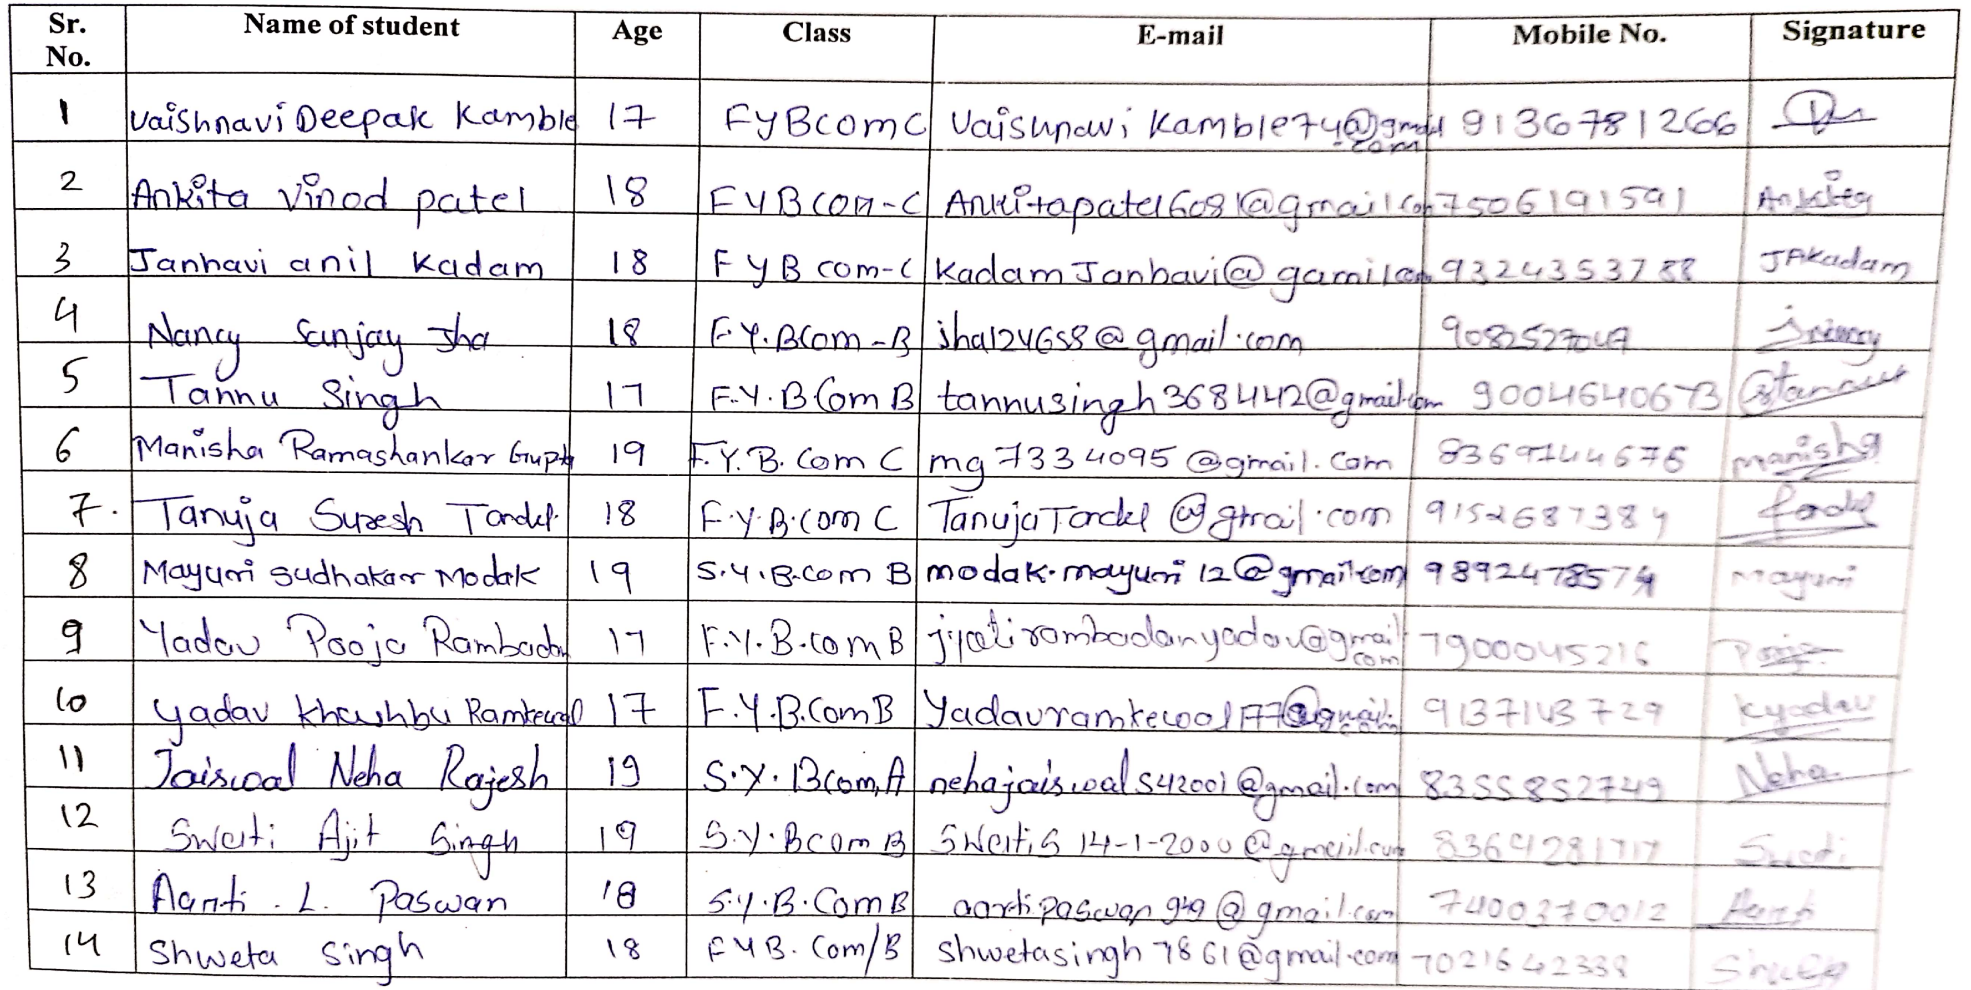 Sr. No. Name of student Age Class E-mail Mobile No. Signature
1 Vaishnavi Deepak Kamble 17 FyBcom C Vaisunawi Kamble74@gmail.com 9136781266
2 Ankita Vinod patel 18 FYBcom-C Ankitapatel6081@gmail.com 7506191591 Ankita
3 Janhavi anil Kadam 18 FyB com-C Kadam Janhavi@gamil.com 9324353788 JAKadam
4 Nancy Sanjay Jha 18 F.Y.BCom-B jha124658@gmail.com 9082527047
5 Tannu Singh 17 F.Y.B.Com B tannusingh368442@gmail.com 9004640673 Tannu
6 Manisha Ramashankar Gupta 19 F.Y.B.Com C mg7334095@gmail.com Manisha
7. Tanuja Suresh Tandel. 18 F.Y.B.com C TanujaTandel@gmail.com 9152687384
8 Mayuri Sudhakar Modak 19 S.Y.B.com B modak.mayuri12@gmail.com 9892478574 Mayuri
9 Yadav Pooja Rambadan 17 F.Y.B.com B jyotirambadanyadav@gmail.com 7900045216 Pooja
10 Yadav Khushbu Ramkewal 17 F.Y.B.Com B Yadavramkewal77@gmail.com 9137143729 Kyadav
11 Jaiswal Neha Rajesh 19 S.Y.Bcom,A nehajaiswal542001@gmail.com 8355852749 Neha
12 Swati Ajit Singh 19 S.Y.Bcom B SwatiS14-1-2000@gmail.com 8369281717 Swati
13 Aarti . L. Paswan 18 S.Y.B.Com B aartipaswan949@gmail.com 7400370012 Aarti
14 Shweta Singh 18 FYB.Com/B shwetasingh7861@gmail.com 7021642338 Shweta